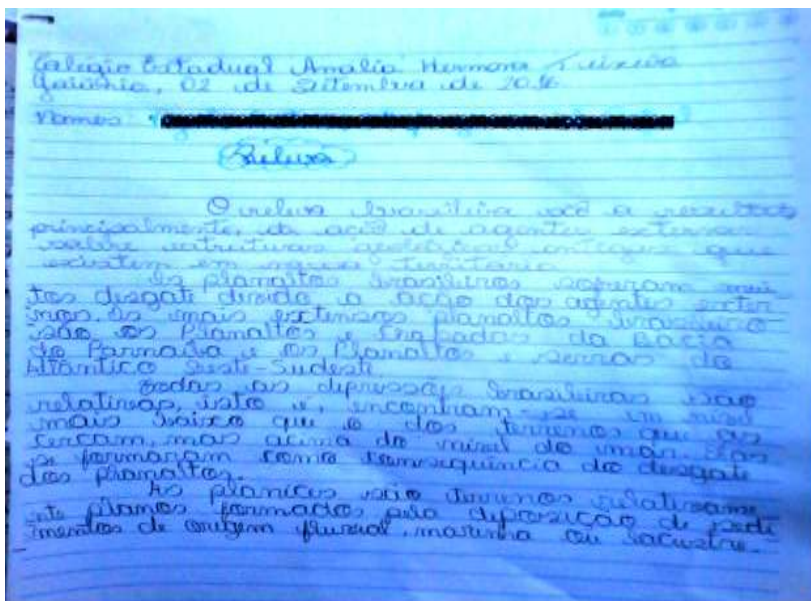 Colegio Estadual Amalia Hermana Teixeira
Goiânia, 02 de Setembro de 2016
Nomes:
Relevo
O relevo brasileiro são a resultas
principalmente, da ação de agentes externos
sobre estruturas geológicas antigas que
existem em nosso território
Os planaltos brasileiros soperam mui
tos desgate divido a acção dos agentes exter
nos. Os mais extensos planaltos brasileiro
são os Planaltos e Chapadas da Bacia
do Parnaíba e os Planaltos e serras do
Atlântico Leste-Sudeste.
Todas as depressões brasileiras são
relativas, isto é, encontram-se em nível
mais baixo que o dos terrenos que as
cercam, mas acima do nível do mar. Elas
se formaram como consequência do desgate
dos planaltos.
As planícies são terrenos relativame
nte planos formados pela deposição de sedi
mentos de origem fluvial, marinha ou lacustre.